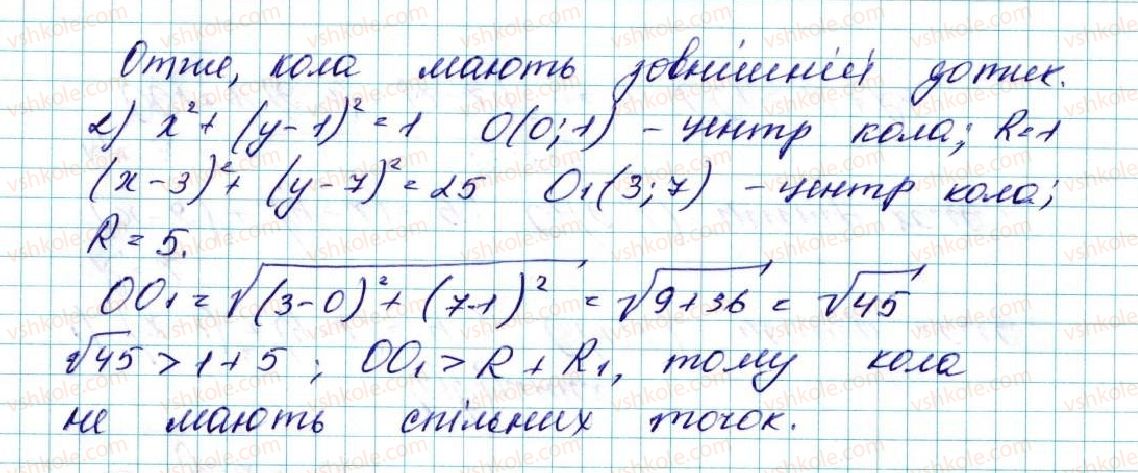 Отже, кола мають зовнішній дотик.
2) x² + (y-1)² = 1 O(0;1) – центр кола; R=1
(x-3)² + (y-7)² = 25 O₁(3;7) – центр кола;
R = 5.
OO₁ = √((3-0)² + (7-1)²) = √(9+36) = √45
√45 > 1+5 ; OO₁ > R + R₁, тому кола
не мають спільних точок.